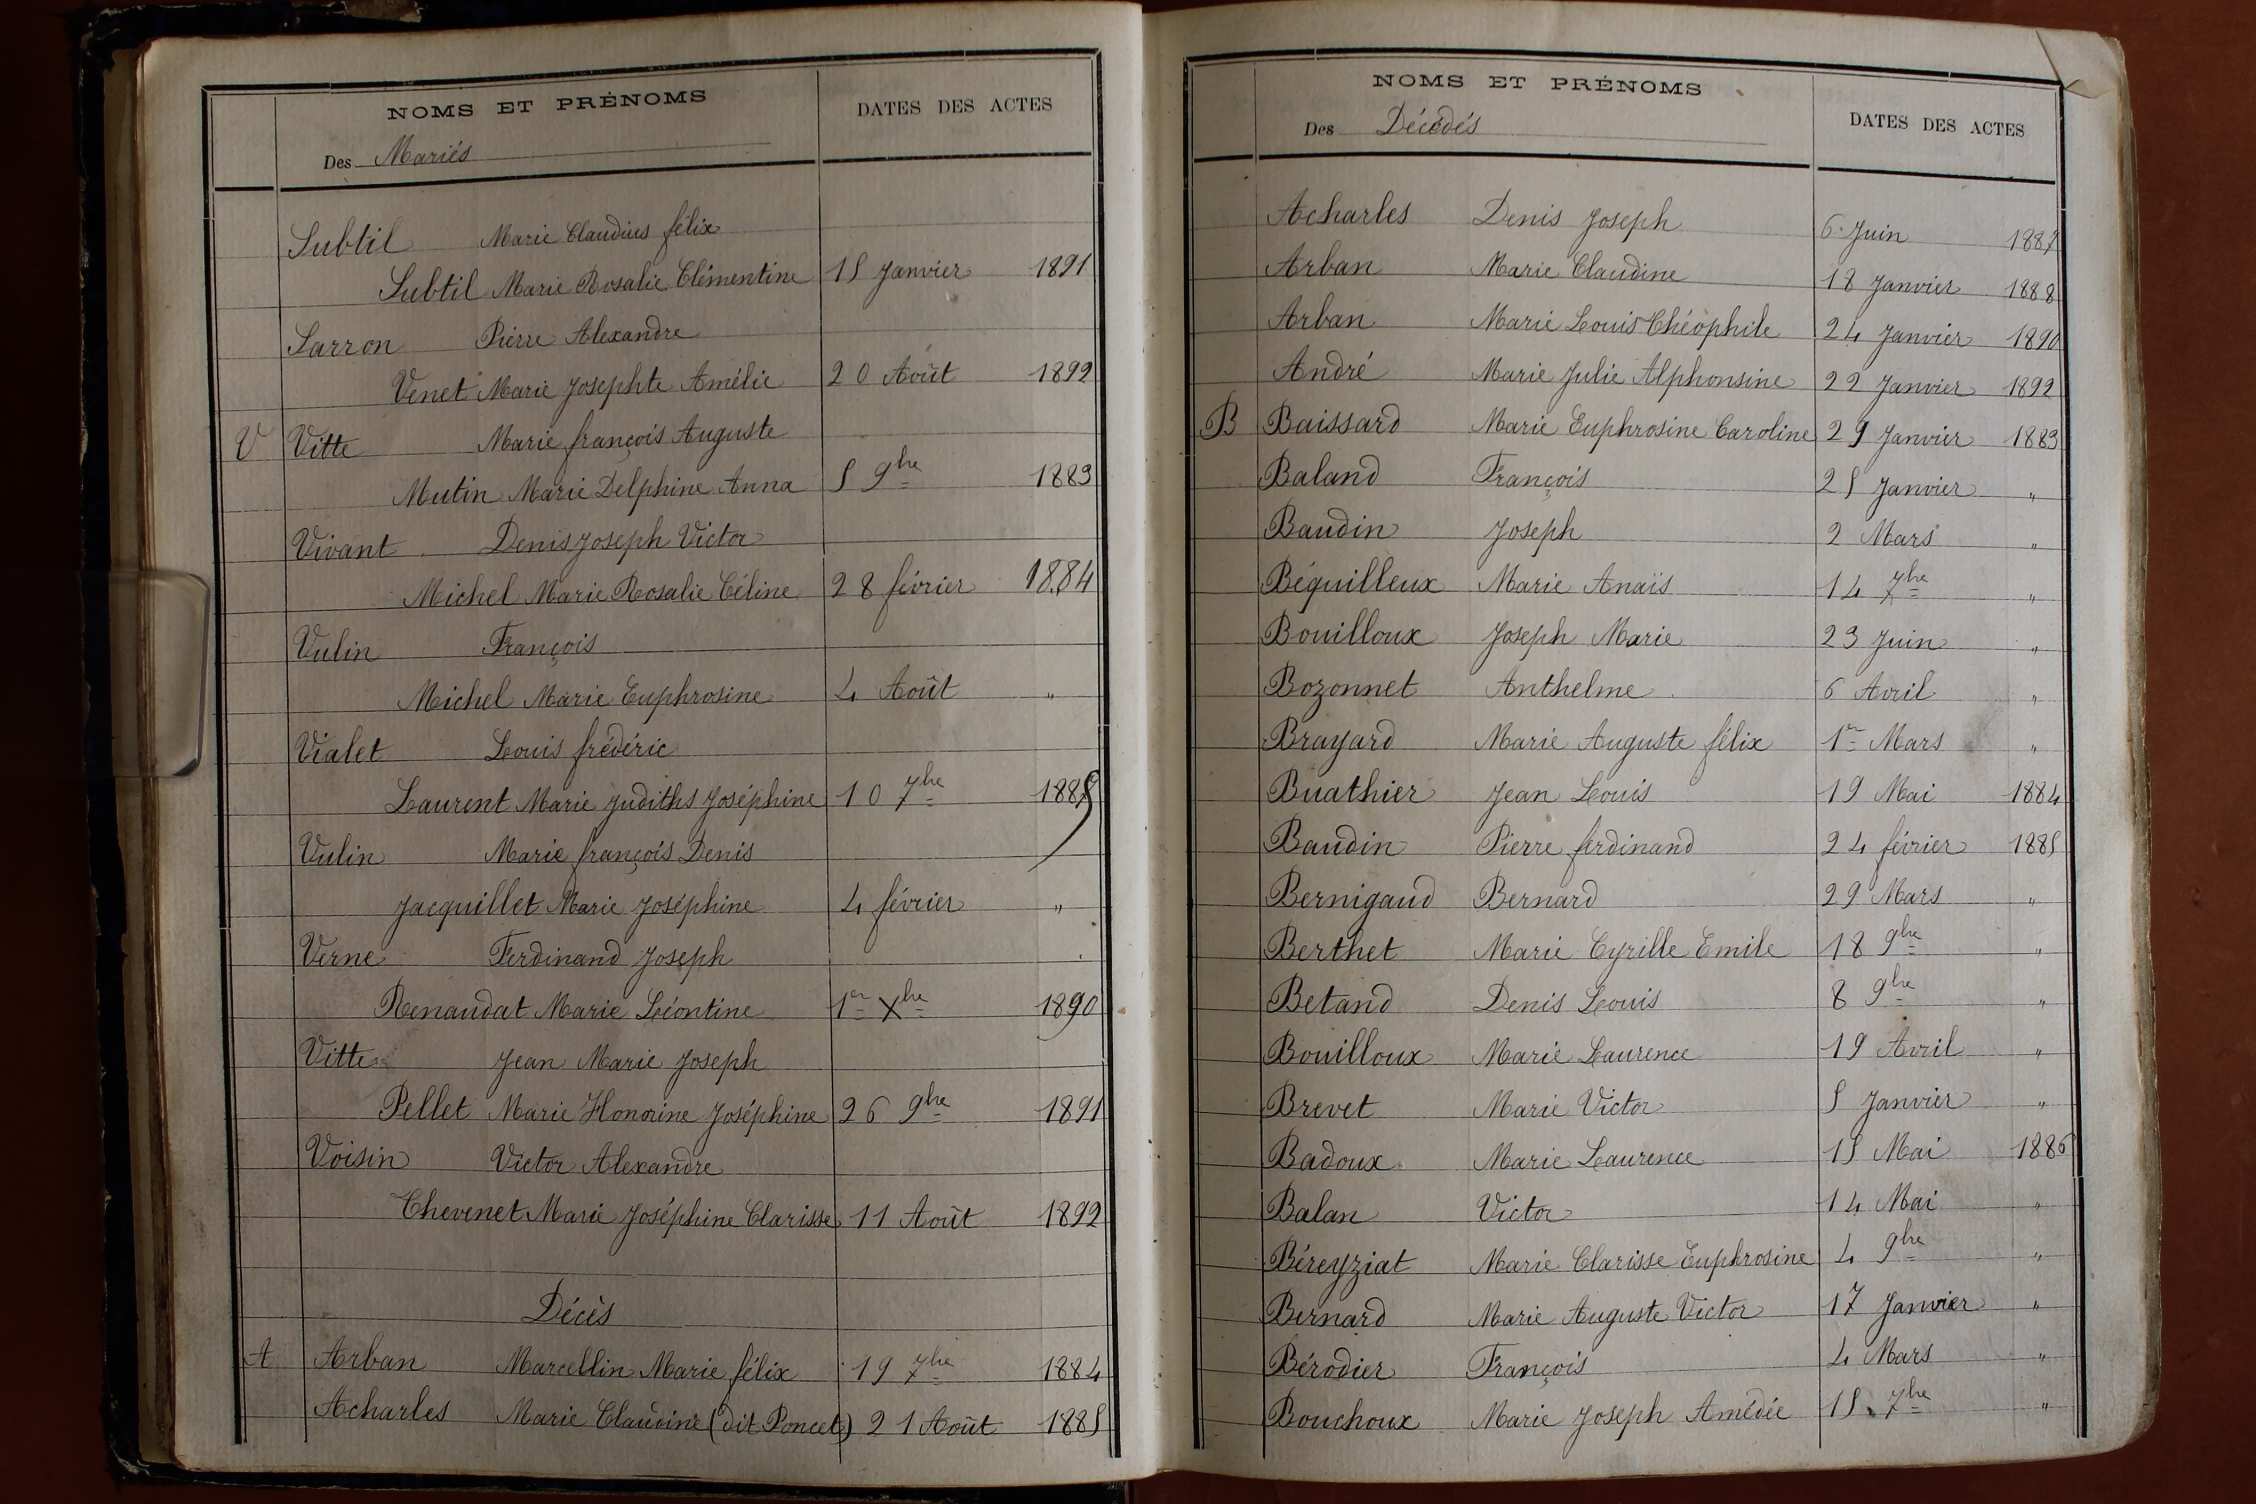 NOMS ET PRÉNOMS DATES DES ACTES
Des Mariés
Subtil Marie Claudius félix
Subtil Marie Rosalie Clémentine 15 Janvier 1891
Sarron Pierre Alexandre
Venet Marie Josephte Amélie 20 Août 1892
V Vitte Marie françois Auguste
Mutin Marie Delphine Anna 5 9bre 1883
Vivant Denis Joseph Victor
Michel Marie Rosalie Céline 28 février 1884
Vulin François
Michel Marie Euphrosine 4 Août "
Vialet Louis frédéric
Laurent Marie Judiths Joséphine 10 7bre 1885
Vulin Marie françois Denis
Jacquillet Marie Joséphine 4 février "
Verne Ferdinand Joseph
Renaudat Marie Léontine 1er Xbre 1890
Vitte Jean Marie Joseph
Pellet Marie Honorine Joséphine 26 9bre 1891
Voisin Victor Alexandre
Chevenet Marie Joséphine Clarisse 11 Août 1892
Décès
A Arban Marcellin Marie félix 19 7bre 1884
Acharles Marie Claudine (dit Poncet) 21 Août 1885
NOMS ET PRÉNOMS DATES DES ACTES
Des Décédés
Acharles Denis Joseph 6 Juin 1887
Arban Marie Claudine 18 Janvier 1888
Arban Marie Louis Théophile 24 Janvier 1890
André Marie Julie Alphonsine 22 Janvier 1892
B Baissard Marie Euphrosine Caroline 29 Janvier 1883
Baland François 25 Janvier "
Baudin Joseph 2 Mars "
Béquilleux Marie Anaïs 14 7bre "
Bouilloux Joseph Marie 23 Juin "
Bozonnet Anthelme 6 Avril "
Brayard Marie Auguste félix 1er Mars "
Buathier Jean Louis 19 Mai 1884
Baudin Pierre ferdinand 24 février 1885
Bernigaud Bernard 29 Mars "
Berthet Marie Cyrille Emile 18 9bre "
Betand Denis Louis 8 9bre "
Bouilloux Marie Laurence 19 Avril "
Brevet Marie Victor 5 Janvier "
Badoux Marie Laurence 15 Mai 1886
Balan Victor 14 Mai "
Béreyziat Marie Clarisse Euphrosine 4 9bre "
Bernard Marie Auguste Victor 17 Janvier "
Bérodier François 4 Mars "
Bouchoux Marie Joseph Amédée 15 7bre "